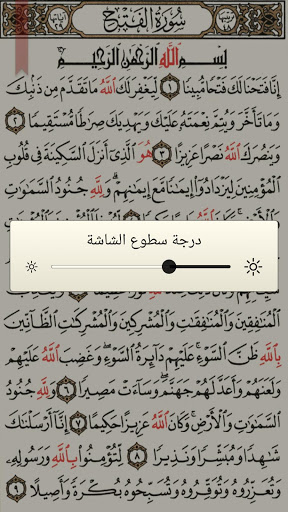 ترتيبها ٤٨ سورة الفتح آياتها ٢٩
بسم الله الرحمن الرحيم
إنا فتحنا لك فتحا مبينا ١ ليغفر لك الله ما تقدم من ذنبك
وما تأخر ويتم نعمته عليك ويهديك صراطا مستقيما ٢
وينصرك الله نصرا عزيزا ٣ هو الذي أنزل السكينة في قلوب
المؤمنين ليزدادوا إيمانا مع إيمانهم ولله جنود السموت
درجة سطوع الشاشة
المنفقين والمنفقت والمشركين والمشركت الظانين
بالله ظن السوء عليهم دائرة السوء وغضب الله عليهم
ولعنهم وأعد لهم جهنم وساءت مصيرا ٦ ولله جنود
السموت والأرض وكان الله عزيزا حكيما ٧ إنا أرسلنك
شهدا ومبشرا ونذيرا ٨ لتؤمنوا بالله ورسوله
وتعزروه وتوقروه وتسبحوه بكرة وأصيلا ٩